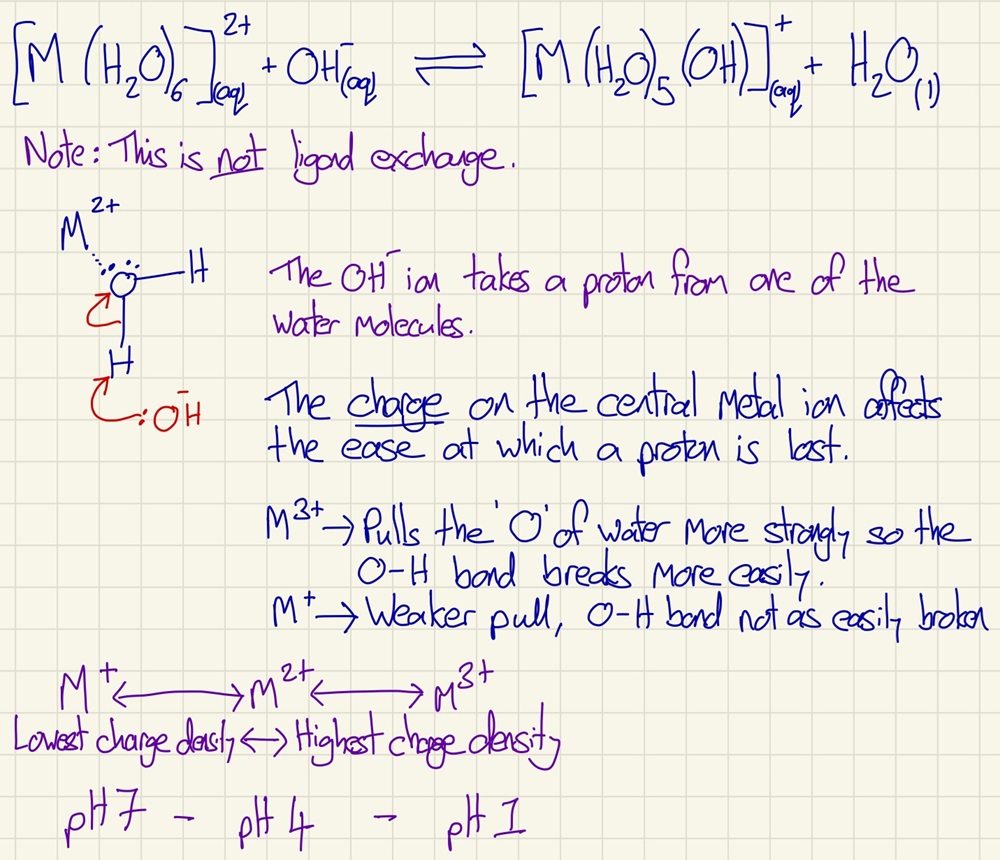 [M(H₂O)₆]²⁺(aq) + OH⁻(aq) ⇌ [M(H₂O)₅(OH)]⁺(aq) + H₂O(l)
Note: This is not ligand exchange.
M²⁺
O H
H
:OH⁻
The OH⁻ ion takes a proton from one of the
water molecules.
The charge on the central metal ion affects
the ease at which a proton is lost.
M³⁺ → Pulls the 'O' of water more strongly so the
O-H bond breaks more easily.
M⁺ → Weaker pull, O-H bond not as easily broken
M⁺ ↔ M²⁺ ↔ M³⁺
Lowest charge density ↔ Highest charge density
pH 7 - pH 4 - pH 1